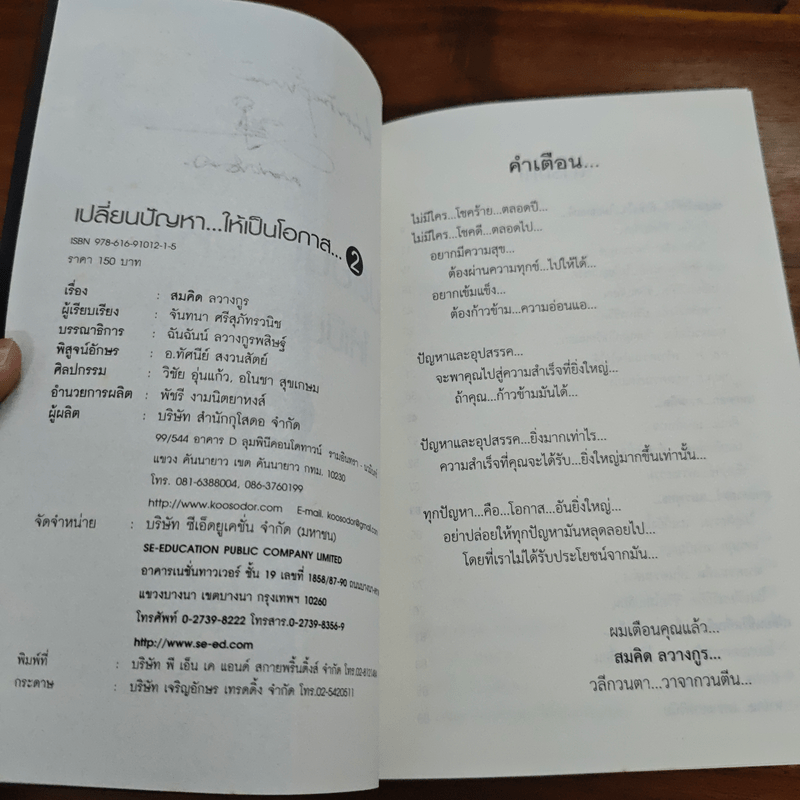 เปลี่ยนปัญหา...ให้เป็นโอกาส... 2
ISBN 978-616-91012-1-5
ราคา 150 บาท
เรื่อง : สมคิด ลวางกูร
ผู้เรียบเรียง : จันทนา ศรีสุภัทรวนิช
บรรณาธิการ : ฉันฉันน์ ลวางกูรพสิษฐ์
พิสูจน์อักษร : อ.ทัศนีย์ สงวนสัตย์
ศิลปกรรม : วิชัย อุ่นแก้ว, อโนชา สุขเกษม
อำนวยการผลิต : พัชรี งามนิตยาหงส์
ผู้ผลิต : บริษัท สำนักกุโสดอ จำกัด
99/544 อาคาร D ลุมพินีคอนโดทาวน์ รามอินทรา -
แขวง คันนายาว เขต คันนายาว กทม. 10230
โทร. 081-6388004, 086-3760199
http://www.koosodor.com E-mail. koosodor@gmail.com
จัดจำหน่าย : บริษัท ซีเอ็ดยูเคชั่น จำกัด (มหาชน)
SE-EDUCATION PUBLIC COMPANY LIMITED
อาคารเนชั่นทาวเวอร์ ชั้น 19 เลขที่ 1858/87-90
แขวงบางนา เขตบางนา กรุงเทพฯ 10260
โทรศัพท์ 0-2739-8222 โทรสาร.0-2739-8356-9
http://www.se-ed.com
พิมพ์ที่ : บริษัท พี เอ็น เค แอนด์ สกายพริ้นติ้งส์ จำกัด
กระดาษ : บริษัท เจริญอักษร เทรดดิ้ง จำกัด โทร.02-5420511
คำเตือน...
ไม่มีใคร...โชคร้าย...ตลอดปี...
ไม่มีใคร...โชคดี...ตลอดไป...
อยากมีความสุข...
ต้องผ่านความทุกข์...ไปให้ได้...
อยากเข้มแข็ง...
ต้องก้าวข้าม...ความอ่อนแอ...
ปัญหาและอุปสรรค...
จะพาคุณไปสู่ความสำเร็จที่ยิ่งใหญ่...
ถ้าคุณ...ก้าวข้ามมันได้...
ปัญหาและอุปสรรค...ยิ่งมากเท่าไร...
ความสำเร็จที่คุณจะได้รับ...ยิ่งใหญ่มากขึ้นเท่านั้น...
ทุกปัญหา...คือ...โอกาส...อันยิ่งใหญ่...
อย่าปล่อยให้ทุกปัญหามันหลุดลอยไป...
โดยที่เราไม่ได้รับประโยชน์จากมัน...
ผมเตือนคุณแล้ว...
สมคิด ลวางกูร...
วลีกวนตา...วาจากวนตีน...